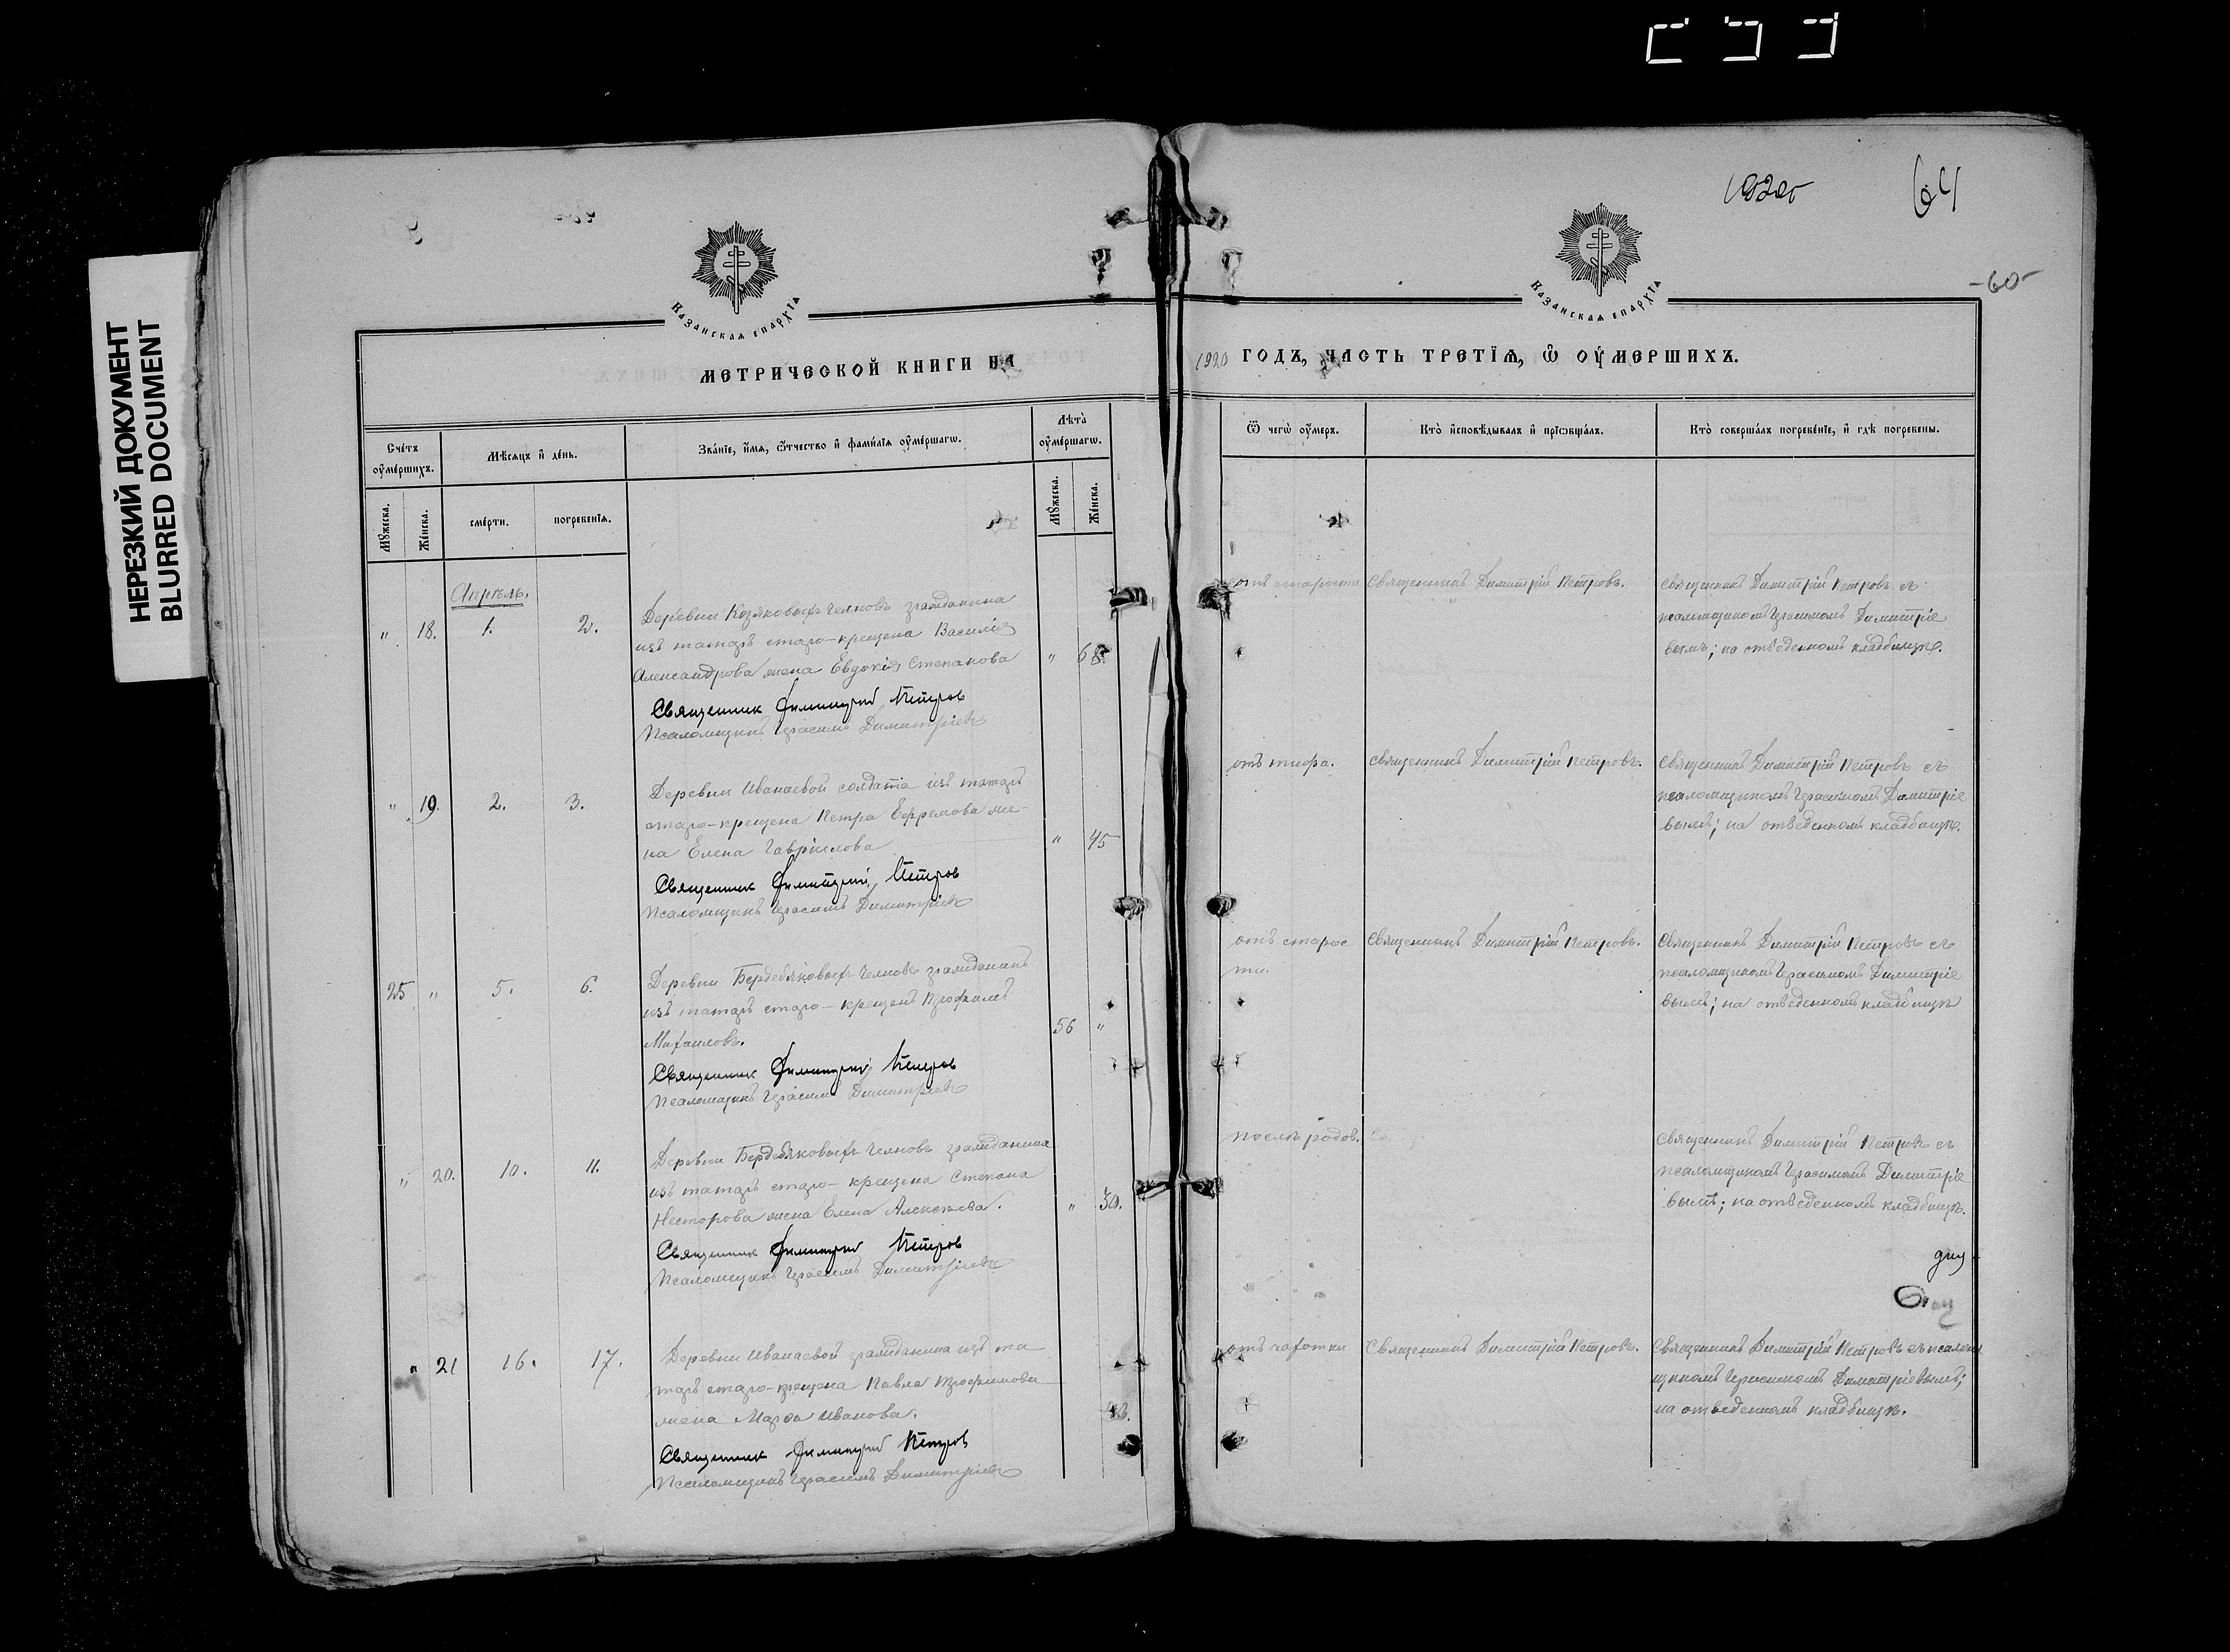 НЕРЕЗКИЙ ДОКУМЕНТ
BLURRED DOCUMENT
1920г
64
-60-
КАЗАНСКАЯ ЕПАРХІЯ
КАЗАНСКАЯ ЕПАРХІЯ
МЕТРИЧЕСКОЙ КНИГИ НА
1920 ГОДЪ, ЧАСТЬ ТРЕТІЯ, Ѡ ОУМЕРШИХЪ.
Счетъ оумершихъ.
Мѣсяцъ и день.
Званіе, имя, ѿчество и фамилія оумершагѡ.
Лѣта оумершагѡ.
Ѿ чегѡ оумеръ.
Кто исповѣдывалъ и пріѡбщалъ.
Кто совершалъ погребеніе, и гдѣ погребены.
Мꙋжеска.
Женска.
смерти.
погребенія.
Мꙋжеска.
Женска.
Апрель.
" 18. 1. 2.
Деревни Козяковыхъ Челновъ гражданина
изъ татаръ старо-крещена Василія
Александрова жена Евдокія Степанова
" 68.
Священник Димитрий Петров
Псаломщикъ Герасимъ Димитріевъ
отъ старости
Священникъ Димитрій Петровъ.
Священникъ Димитрій Петровъ съ
псаломщикомъ Герасимомъ Димитріе
вымъ; на отведенномъ кладбищѣ.
" 19. 2. 3.
Деревни Иванаевой солдата изъ татаръ
старо-крещена Петра Ефремова же-
на Елена Гавріилова
" 45
Священник Димитрий Петров
Псаломщикъ Герасимъ Димитріевъ
отъ тифа.
Священникъ Димитрій Петровъ.
Священникъ Димитрій Петровъ съ
псаломщикомъ Герасимомъ Димитріе
вымъ; на отведенномъ кладбищѣ.
25 " 5. 6.
Деревни Бердебяковыхъ Челновъ гражданинъ
изъ татаръ старо-крещенъ Трофимъ
Михаиловъ.
56 "
Священник Димитрий Петров
Псаломщикъ Герасимъ Димитріевъ
отъ старос
ти.
Священникъ Димитрій Петровъ.
Священникъ Димитрій Петровъ съ
псаломщикомъ Герасимомъ Димитріе
вымъ; на отведенномъ кладбищѣ
" 20. 10. 11.
Деревни Бердебяковыхъ Челновъ гражданина
изъ татаръ старо-крещена Степана
Несторова жена Елена Алексѣева.
" 30.
Священник Димитрий Петров
Псаломщикъ Герасимъ Димитріевъ
послѣ родов.
Священникъ Димитрій Петровъ съ
псаломщикомъ Герасимомъ Димитріе
вымъ; на отведенномъ кладбищѣ.
" 21 16. 17.
Деревни Иванаевой гражданина изъ та
таръ старо-крещена Павла Трофимова
жена Марѳа Иванова.
Священник Димитрий Петров
Псаломщикъ Герасимъ Димитріевъ
отъ чахотки
Священникъ Димитрій Петровъ.
Священникъ Димитрій Петровъ съ псалом
щикомъ Герасимомъ Димитріевымъ;
на отведенномъ кладбищѣ.